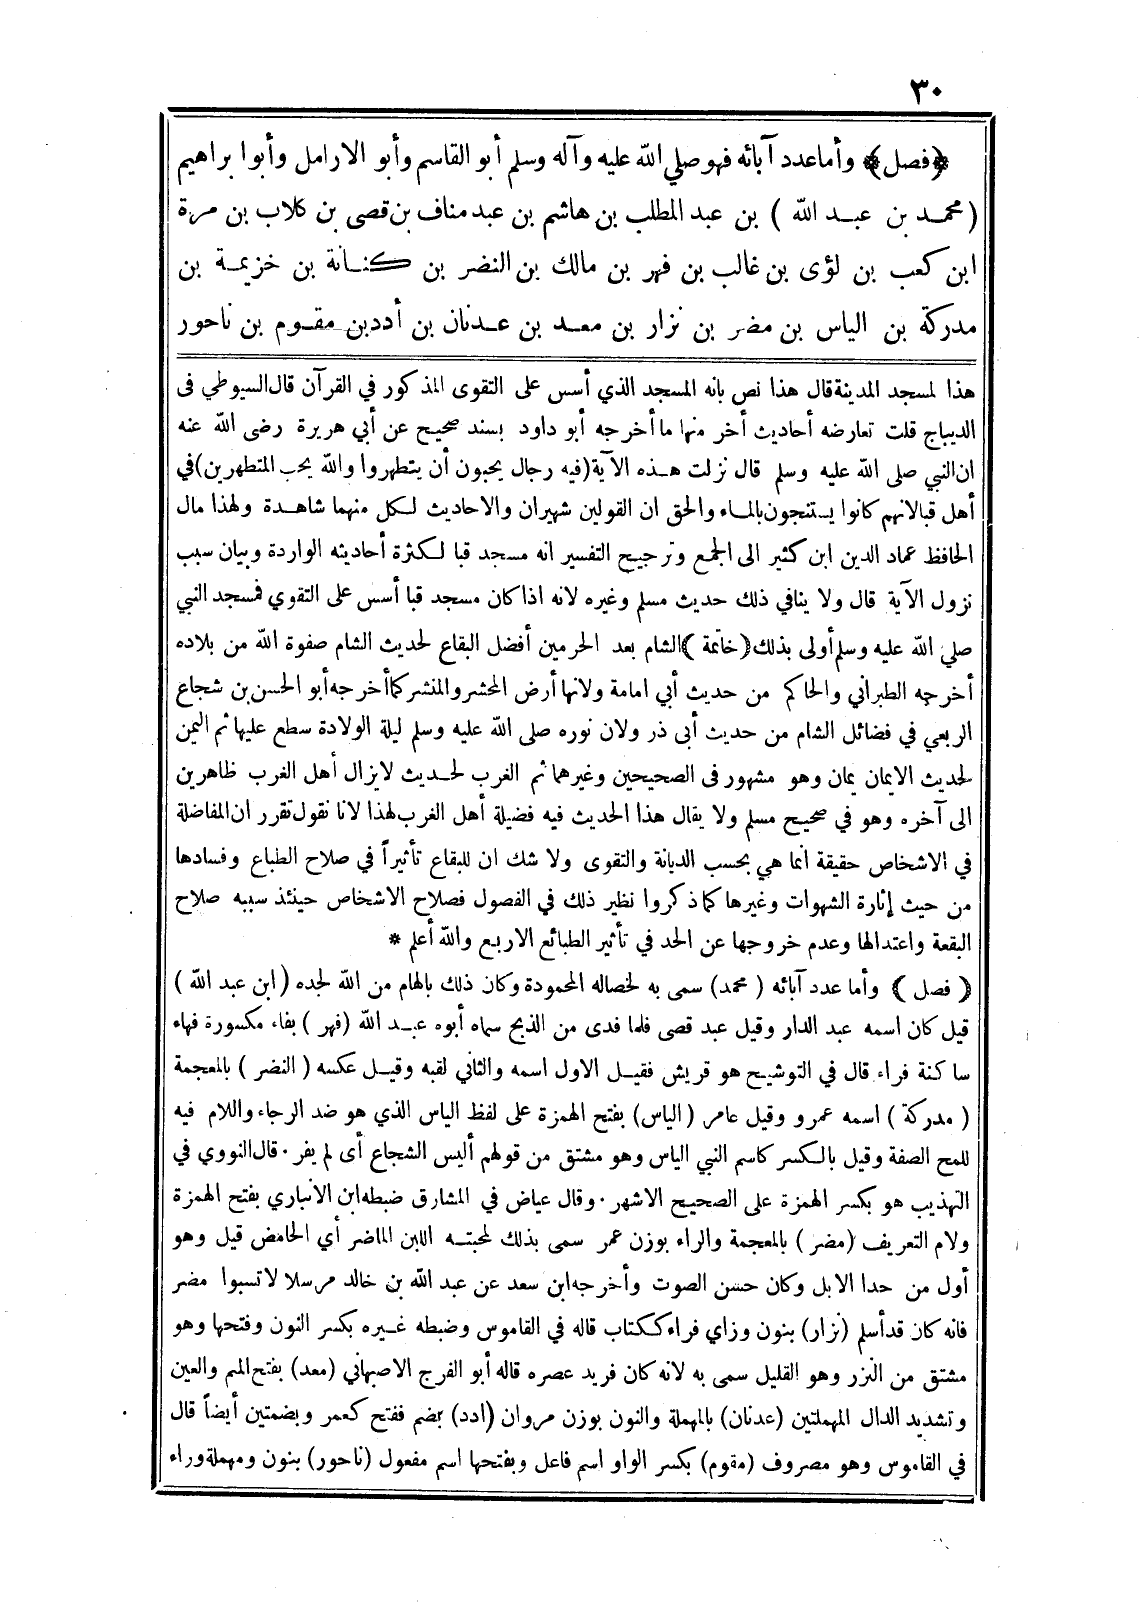 ٣٠
﴿فصل﴾ وأماعدد آبائه فهو صلي الله عليه وآله وسلم أبو القاسم وأبو الارامل وأبوا براهيم
(محمد بن عبد الله ) بن عبد المطلب بن هاشم بن عبد مناف بن قصى بن كلاب بن مرة
ابن كعب بن لؤى بن غالب بن فهر بن مالك بن النضر بن كنانة بن خزيمة بن
مدركة بن الياس بن مضر بن نزار بن معد بن عدنان بن أدد بن مقوم بن ناحور
هذا لمسجد المدينة قال هذا نص بانه المسجد الذي أسس على التقوى المذكور في القرآن قال السيوطي فى
الديباج قلت تعارضه أحاديث أخر منها ما أخرجه أبو داود بسند صحيح عن أبي هريرة رضى الله عنه
ان النبي صلى الله عليه وسلم قال نزلت هذه الآية (فيه رجال يحبون أن يتطهروا والله يحب المتطهرين) في
أهل قبالانهم كانوا يستنجون بالماء والحق ان القولين شهيران والاحاديث لكل منهما شاهدة ولهذا مال
الحافظ عماد الدين ابن كثير الى الجمع وترجيح التفسير انه مسجد قبا لكثرة أحاديثه الواردة وبيان سبب
نزول الآية قال ولا ينافي ذلك حديث مسلم وغيره لانه اذا كان مسجد قبا أسس على التقوي فمسجد النبي
صلي الله عليه وسلم أولى بذلك ﴿خاتمة﴾ الشام بعد الحرمين أفضل البقاع لحديث الشام صفوة الله من بلاده
أخرجه الطبراني والحاكم من حديث أبي امامة ولانها أرض المحشر والمنشر كما أخرجه أبو الحسن بن شجاع
الربعي في فضائل الشام من حديث أبى ذر ولان نوره صلى الله عليه وسلم ليلة الولادة سطع عليها ثم اليمن
لحديث الايمان يمان وهو مشهور فى الصحيحين وغيرهما ثم الغرب لحديث لايزال أهل الغرب ظاهرين
الى آخره وهو في صحيح مسلم ولا يقال هذا الحديث فيه فضيلة أهل الغرب لهذا لانا نقول تقرر ان المفاضلة
في الاشخاص حقيقة انما هي بحسب الديانة والتقوى ولا شك ان للبقاع تأثيراً في صلاح الطباع وفسادها
من حيث إثارة الشهوات وغيرها كما ذكروا نظير ذلك في الفصول فصلاح الاشخاص حينئذ سببه صلاح
البقعة واعتدالها وعدم خروجها عن الحد في تأثير الطبائع الاربع والله أعلم *
﴿ فصل ﴾ وأما عدد آبائه ( محمد) سمى به لخصاله المحمودة وكان ذلك بالهام من الله لجده (ابن عبد الله )
قيل كان اسمه عبد الدار وقيل عبد قصى فلما فدى من الذبح سماه أبوه عبد الله (فهر ) بفاء مكسورة فهاء
ساكنة فراء قال في التوشيح هو قريش فقيل الاول اسمه والثاني لقبه وقيل عكسه ( النضر ) بالمعجمة
( مدركة ) اسمه عمرو وقيل عامر (الياس) بفتح الهمزة على لفظ الياس الذي هو ضد الرجاء واللام فيه
للمح الصفة وقيل بالكسر كاسم النبي الياس وهو مشتق من قولهم أليس الشجاع أى لم يفر · قال النووي في
التهذيب هو بكسر الهمزة على الصحيح الاشهر · وقال عياض في المشارق ضبطه ابن الانباري بفتح الهمزة
ولام التعريف (مضر ) بالمعجمة والراء بوزن عمر سمى بذلك لمحبته اللبن الماضر أي الحامض قيل وهو
أول من حدا الابل وكان حسن الصوت وأخرجه ابن سعد عن عبد الله بن خالد مرسلا لاتسبوا مضر
فانه كان قد أسلم (نزار) بنون وزاي فراء ككتاب قاله في القاموس وضبطه غيره بكسر النون وفتحها وهو
مشتق من النزر وهو القليل سمى به لانه كان فريد عصره قاله أبو الفرج الاصبهاني (معد) بفتح الميم والعين
وتشديد الدال المهملتين (عدنان) بالمهملة والنون بوزن مروان (ادد) بضم ففتح كعمر وبضمتين أيضاً قال
في القاموس وهو مصروف (مقوم) بكسر الواو اسم فاعل وبفتحها اسم مفعول (ناحور) بنون ومهملة وراء